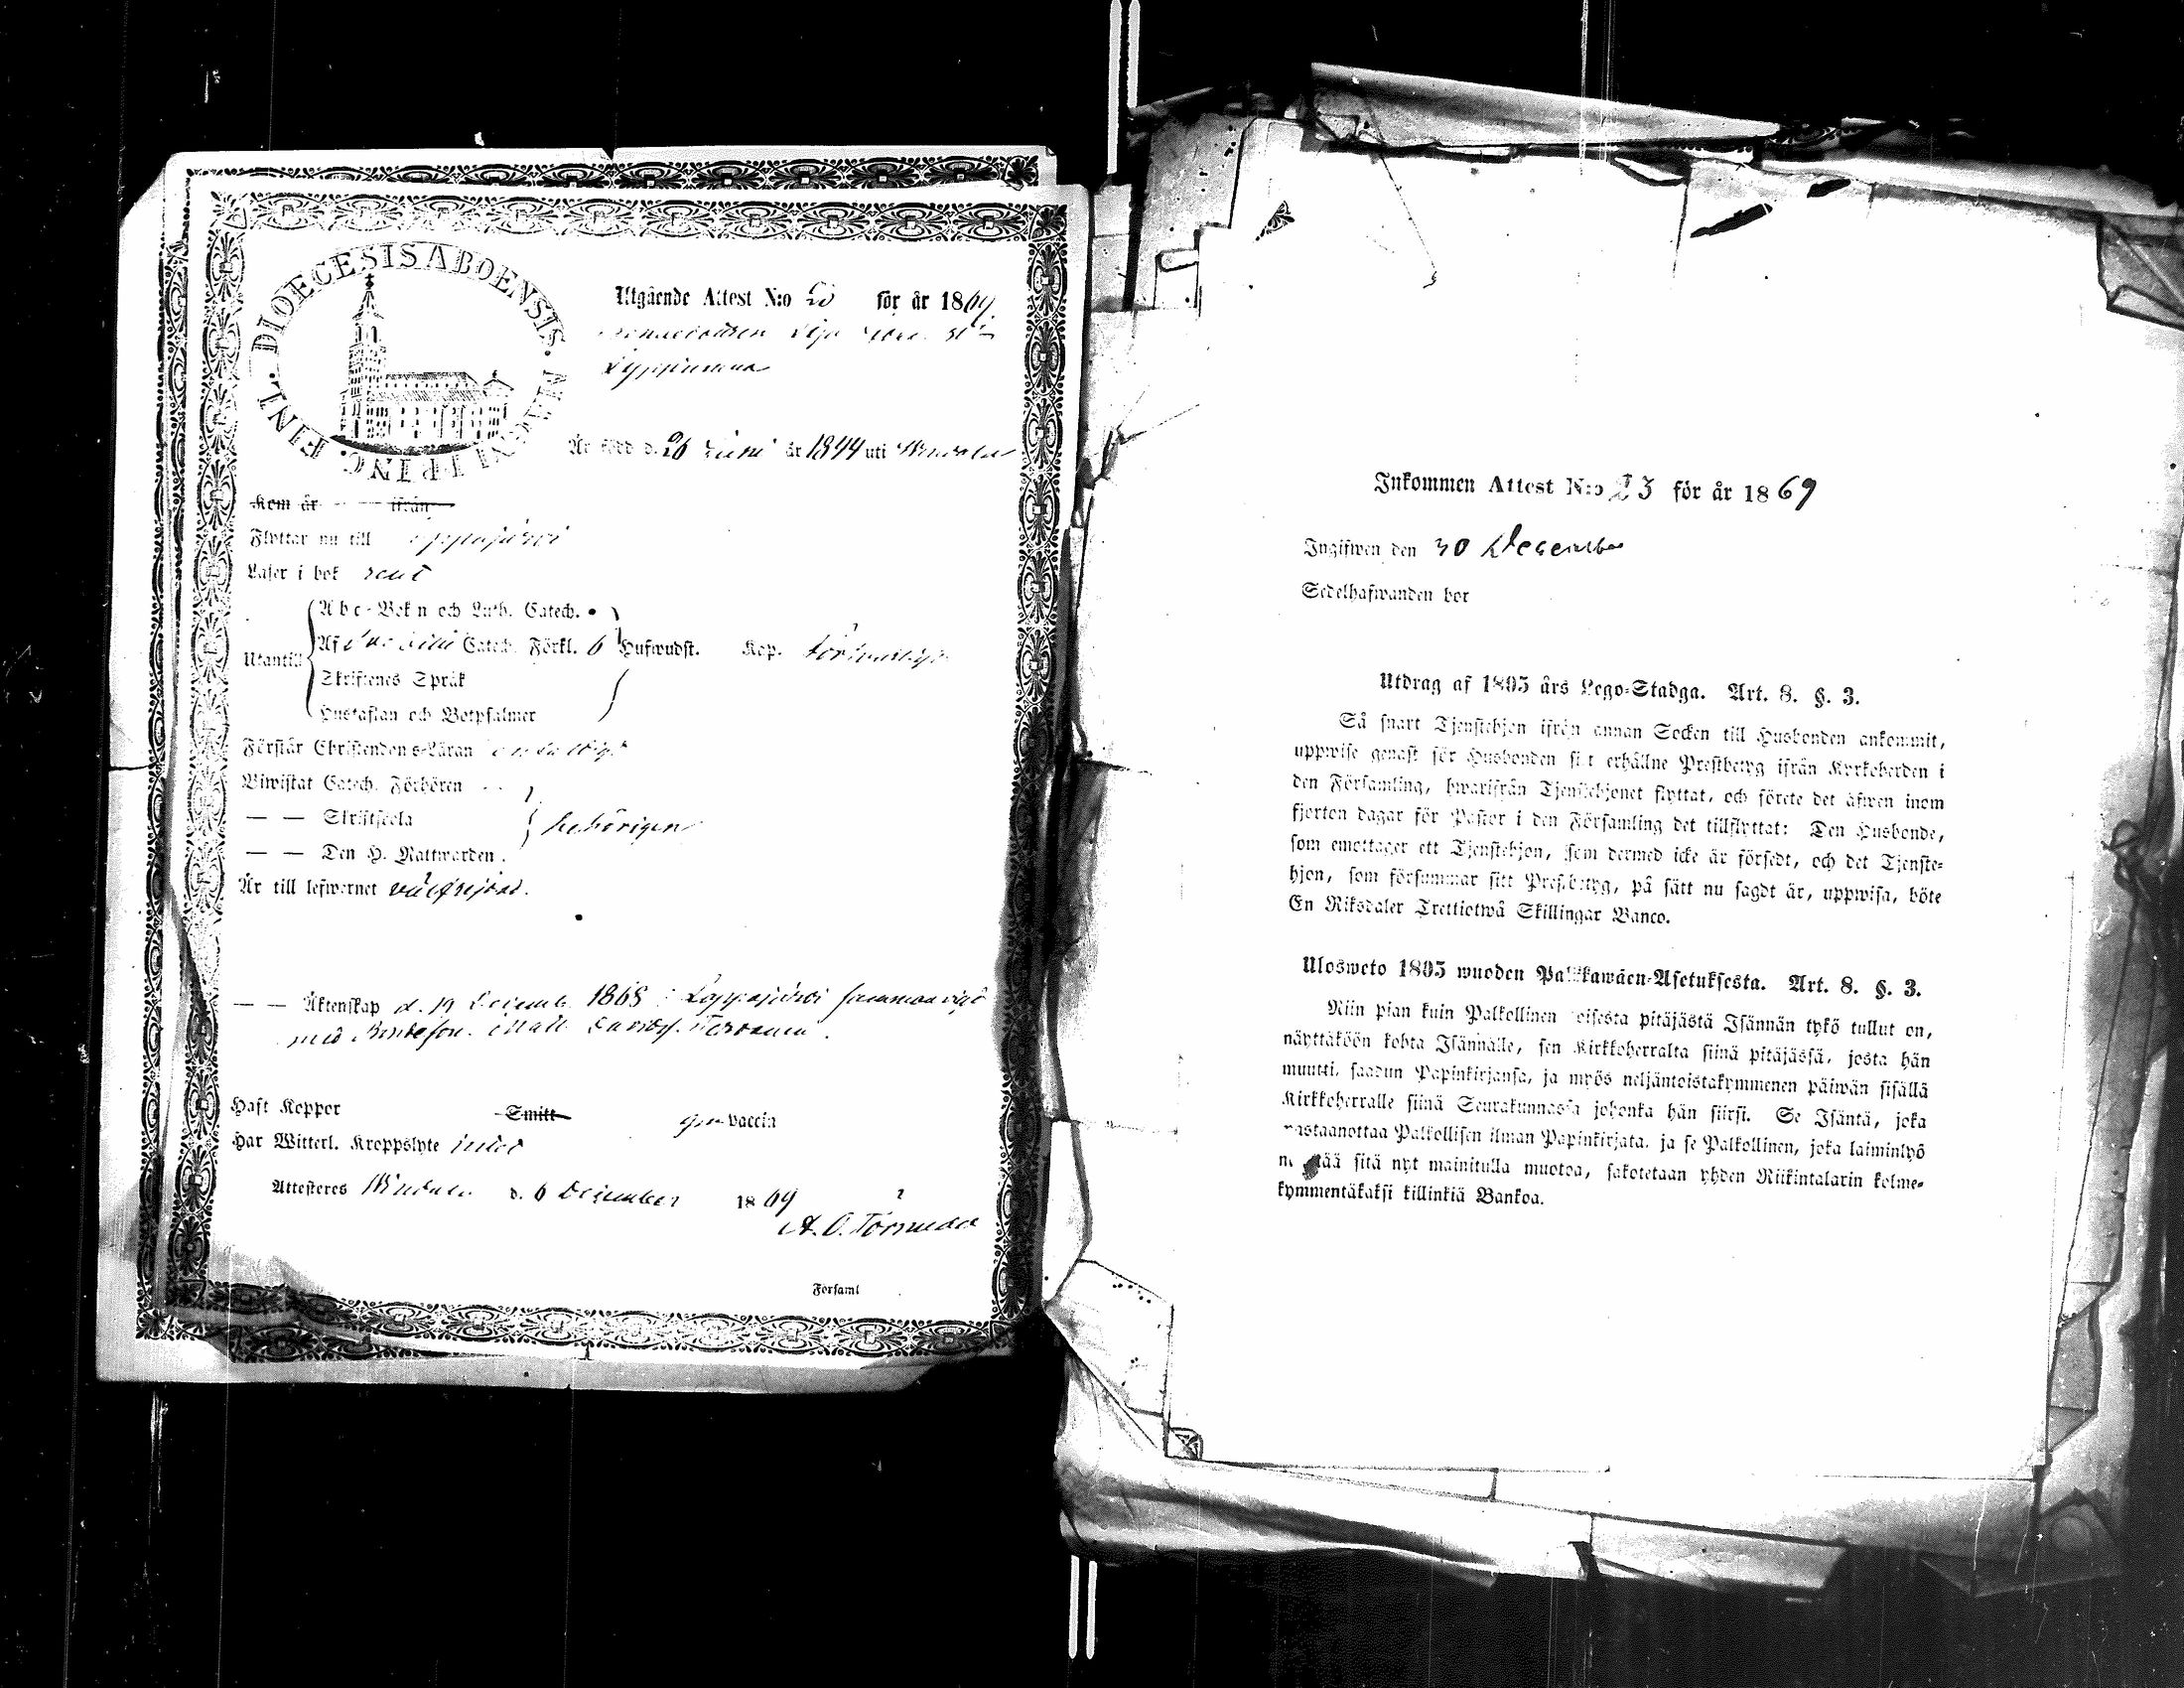 DIOECESIS ABOENSIS. MAGN. PRINC. FINL.
Utgående Attest N:o för år 1869
Är född d. 26 Juni år 1844 uti
Kom år ifrån
Flyttar nu till
Läser i bok rent
Utantill
Abc-Boken och Luth. Catech.
Af Catech. Förkl. 6 Hufwudst. Kap. försvarligt
Skriftenes Språk
Hustaflan och Botpsalmer
Förstår Christendoms-Läran
Biwistat Catech. Förhören
— — Skriftscola
— — Den H. Nattwarden. behörigen
Är till lefwernet välfrejdad.
— — Äktenskap d. 19 1868 i Lappajärvi sammanvigd
med
Haft Koppor Smitt vaccin
Har Witterl. Kroppslyte intet
Attesteras d. 6 December 1869
Församl
Inkommen Attest N:o 23 för år 1869
Ingifwen den 30 December
Sedelhafwanden bor
Utdrag af 1805 års Lego-Stadga. Art. 8. §. 3.
Så snart Tjenstehjon ifrån annan Socken till Husbonden ankommit,
uppwise genast för Husbonden sitt erhållne Prestbetyg ifrån Kyrkoherden i
den Församling, hwarifrån Tjenstehjonet flyttat, och förete det äfwen inom
fjorton dagar för Pastor i den Församling det tillflyttat: Den Husbonde,
som emottager ett Tjenstehjon, som dermed icke är försedt, och det Tjenste-
hjon, som försummar sitt Prestbetyg, på sätt nu sagdt är, uppwisa, böte
En Riksdaler Trettiotwå Skillingar Banco.
Ulosweto 1805 wuoden Palkkawäen-Asetuksesta. Art. 8. §. 3.
Niin pian kuin Palkollinen toisesta pitäjästä Isännän tykö tullut on,
näyttäköön kohta Isännälle, sen Kirkkoherralta siinä pitäjässä, josta hän
muutti, saadun Papinkirjansa, ja myös neljäntoistakymmenen päiwän sisällä
Kirkkoherralle siinä Seurakunnassa johonka hän siirsi. Se Isäntä, joka
wastaanottaa Palkollisen ilman Papinkirjata, ja se Palkollinen, joka laiminlyö
sitä nyt mainitulla muotoa, sakotetaan yhden Riikintalarin kolme-
kymmentäkaksi killinkiä Bankoa.